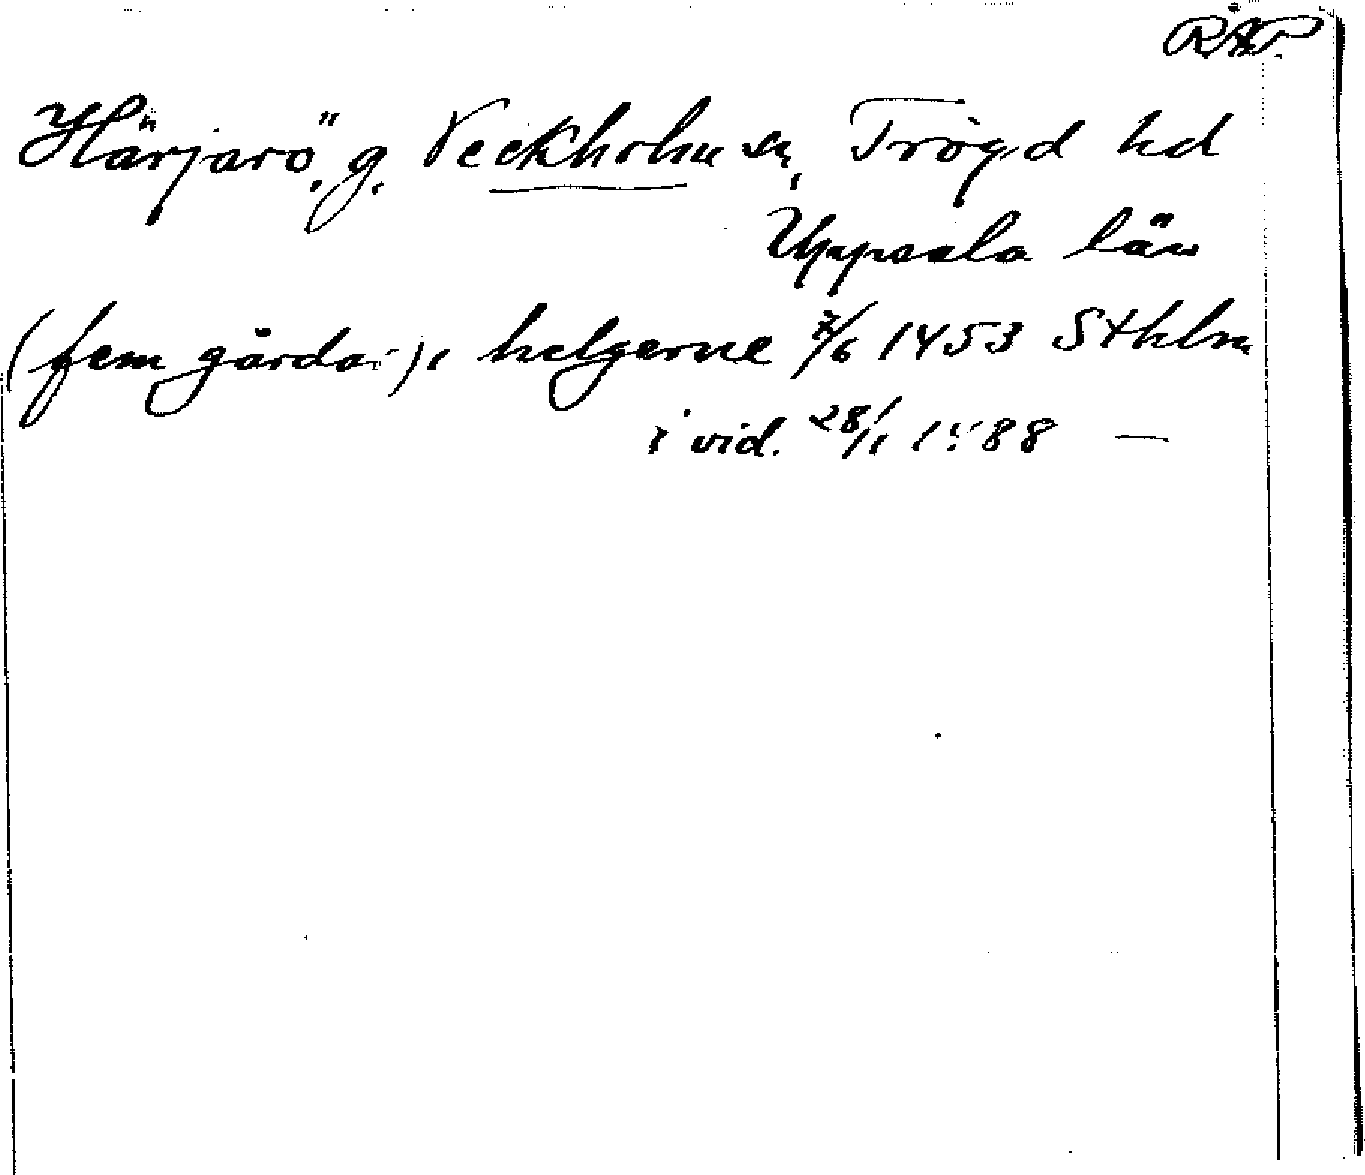 RAP.
Härjarö, g. Veckholm sn, Trögd hd
Uppsala län
(fem gårdar), helgerne 7/6 1453 Sthlm
i vid. 28/1 1488 —